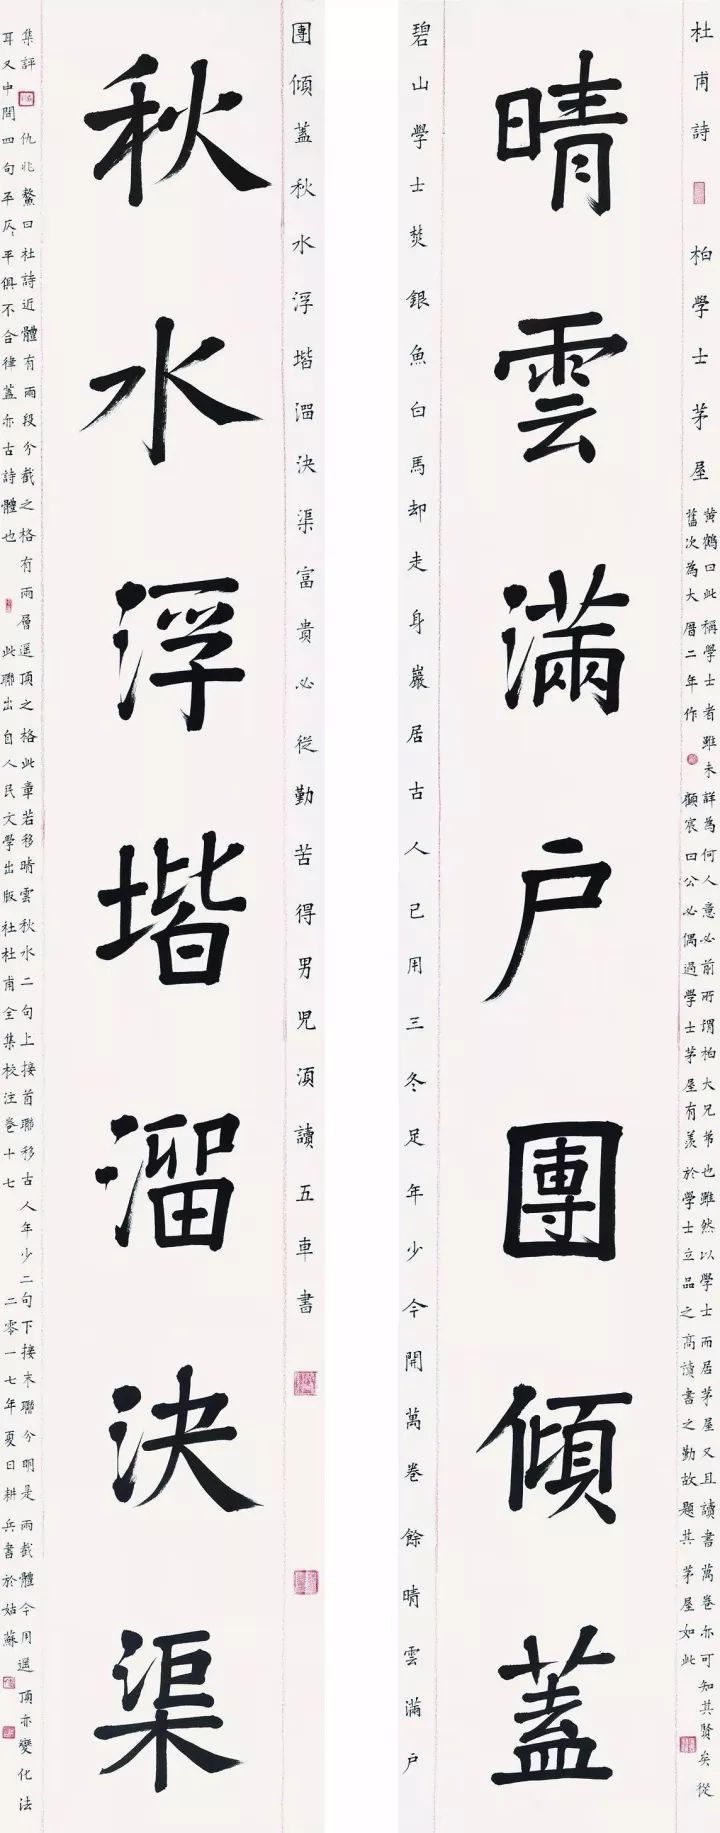 杜甫詩 柏學士茅屋
黃鶴曰此稱學士者雖未詳為何人意必前所謂柏大兄弟也雖然以學士而居茅屋又且讀書萬卷亦可知其賢矣從
舊次為大曆二年作 顧宸曰公必偶過學士茅屋有羨於學士立品之高讀書之勤故題其茅屋如此
晴雲滿戶團傾蓋
碧山學士焚銀魚白馬却走身巖居古人已用三冬足年少今開萬卷餘晴雲滿戶
團傾蓋秋水浮堦溜決渠富貴必從勤苦得男兒須讀五車書
秋水浮堦溜決渠
集評 仇兆鰲曰杜詩近體有兩段分截之格有兩層遥頂之格此章若移晴雲秋水二句上接首聯移古人年少二句下接末聯分明是兩截體今用遥頂亦變化法
耳又中間四句平仄平俱不合律蓋亦古詩體也 此聯出自人民文學出版社杜甫全集校注卷十七 二零一七年夏日耕兵書於姑蘇